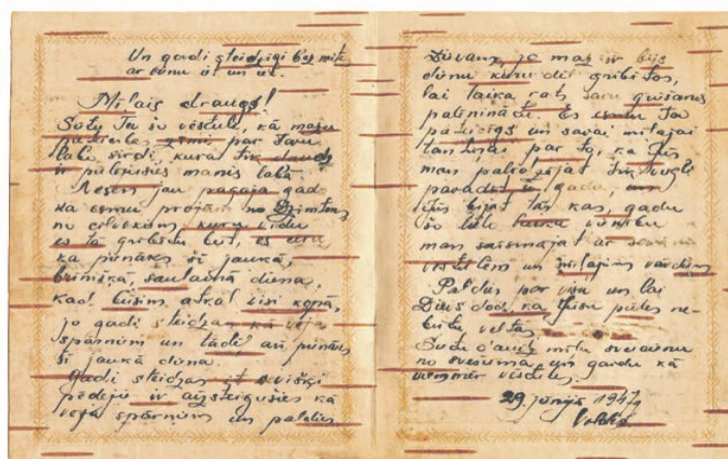 Un gadi steidzīgi bez mitē
ar vienu iet un iet.
Mīļais draugs!
Sūtu Tev šo vēstuli, kā mazu
pateicības zīmi par Tavu
labo sirdi, kura tik daudz
ir pūlējusies manis labā.
Nesen jau pagāja gads
ka esmu projām no Dzimtenes
no cilvēkiem, kuru vidu
es tā gribētu būt, es
ka pienāks šī jaukā,
brīnišķā, saulainā diena,
kad būsim atkal visi kopā,
jo gadi steidzas kā vēja
spārniem un tādēļ arī pienāks
šī jaukā diena.
Gadi steidzas
pēdējo ir aizsteigušies kā
vēja spārniem un paldies
jo maz ir bijis
dienu kuru dēļ gribētos,
lai laika rats savu griešanos
palēnināti. Es esmu Ta
pateicīgs un savai mīļajai
par to, ka Jūs
man palīdzējāt tik viegli
pavadīt šo gadu,
Jūs bijāt tās kas, gadu
šo lielo laika
man saīsinājāt ar
vēstulēm un mīļajiem vārdiem
Paldies par visu un lai
Dievs dod, ka Jūsu pūles ne-
būtu veltas
Sūtu daudz mīļu sveicienu
no svešuma, un gardu kā
vienmēr vēstules.
29. jūnijā 1947